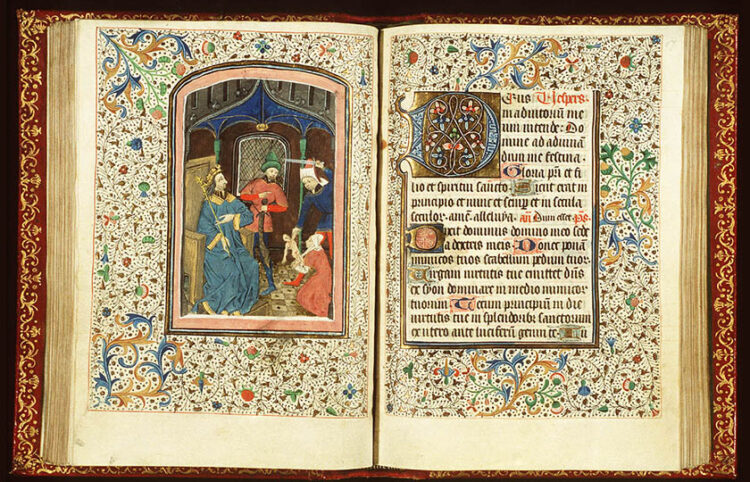 Deus Vespers.
in adiutoriū me
um intende. Do
mine ad adiuuā
dum me festina.
Gloria pr̄i et fi
lio et spiritui sancto. Sicut erat in
principio et nunc et semp̄ et in secula
seculor. amen. alleluya. an̄. Dum esset. ps.
Dixit dominus domino meo sede
a dextris meis. Donec ponā
inimicos tuos scabellum pedum tuor.
Uirgam uirtutis tue emittet dn̄s
ex syon dominare in medio inimicor
tuorum. Tecum principiū in die
uirtutis tue in splendorib sanctorum
ex utero ante luciferū genui te. Iu